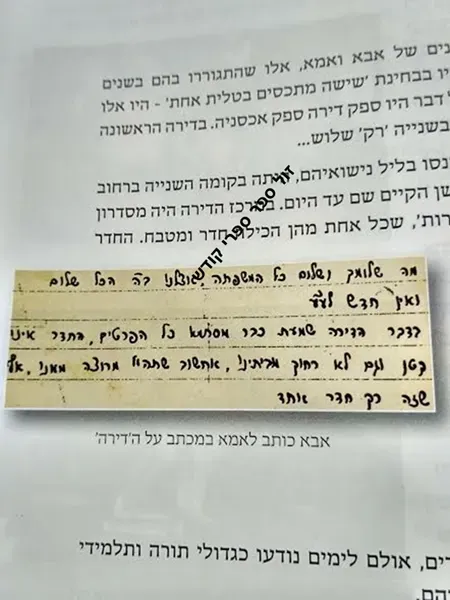 נים של אבא ואמא, אלו שהתגוררו בהם בשנים
יו בבחינת 'שישה מתכסים בטלית אחת' - היו אלו
דבר היו ספק דירה ספק אכסניה. בדירה הראשונה
בשנייה 'רק' שלוש...
נסו בליל נישואיהם, בקומה השנייה ברחוב
שן הקיים שם עד היום. הדירה היה מסדרון
רות', שכל אחת מהן הכילה חדר ומטבח. החדר
מה שלומך ושלום כל המשפחה, אצלנו ב"ה הכל שלום
ואין חדש לע"ע
בדבר הדירה שמעת כבר מסתמא כל הפרטים, החדר אינו
קטן וגם לא רחוק מביתינו, אחשוב שתהי' מרוצה ממנו, אף
שזה רק חדר אחד
אבא כותב לאמא במכתב על ה'דירה'
רים, אולם לימים נודעו כגדולי תורה ותלמידי
הם.